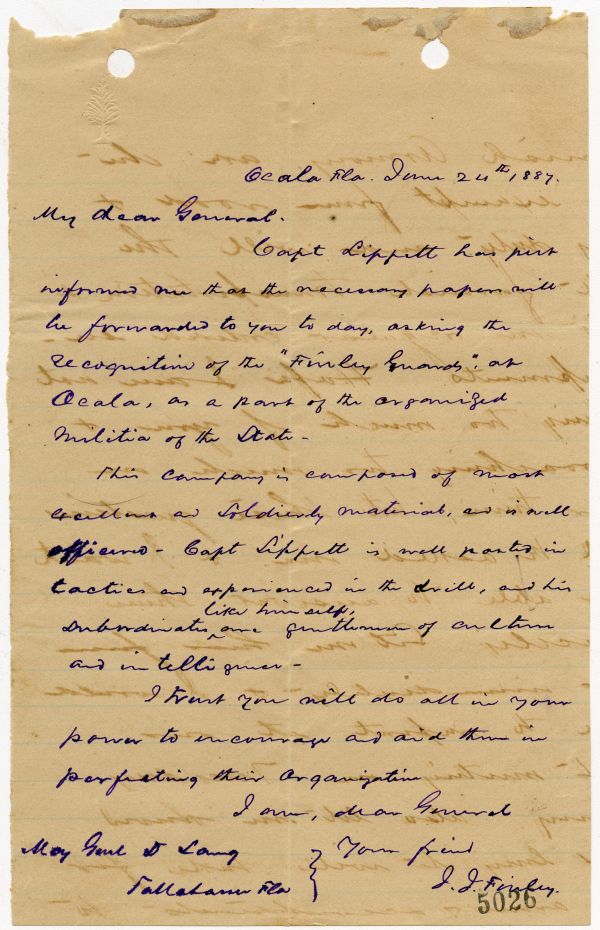 Ocala Fla. June 24th 1887.
My dear General.
Capt Lippett has just
informed me that the necessary papers will
be forwarded to you to day, asking the
recognition of the "Finley Guards", at
Ocala, as a part of the organized
Militia of the State -
This company is composed of most
excellent and soldierly material, and is well
officered - Capt Lippett is well posted in
tactics and experienced in the drill, and his
like himself,
subordinates are gentlemen of culture
and intelligence -
I trust you will do all in your
power to encourage and aid them in
perfecting their Organization
I am, dear General
Maj Genl D Lang } Your friend
Tallahassee Fla J. J. Finley.
5026